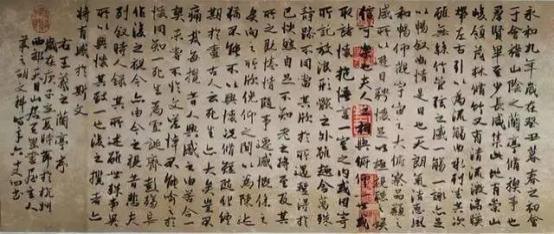 永和九年歲在癸丑暮春之初會
于會稽山陰之蘭亭脩稧事也
群賢畢至少長咸集此地有崇山
峻領茂林脩竹又有清流激湍暎
帶左右引以為流觴曲水列坐其次
雖無絲竹管弦之盛一觴一詠亦足
以暢敘幽情是日也天朗氣清惠風
和暢仰觀宇宙之大俯察品類之
盛所以遊目騁懷足以極視聽之娛
信可樂也夫人之相與俯仰一世或
取諸懷抱悟言一室之內或因寄
所託放浪形骸之外雖趣舍萬殊
靜躁不同當其欣於所遇蹔得於
己快然自足不知老之將至及其
所之既惓情隨事遷感慨係之
矣向之所欣俛仰之間以為陳迹
猶不能不以之興懷況脩短隨化終
期於盡古人云死生亦大矣豈不
痛哉每攬昔人興感之由若合一
契未嘗不臨文嗟悼不能喻之於
懷固知一死生為虛誕齊彭殤為妄
作後之視今亦由今之視昔悲夫故
列敘時人錄其所述雖世殊事異
所以興懷其致一也後之攬者亦
將有感於斯文
右王羲之蘭亭序
歲在庚子之夏時於杭州
西郊天目山居主人